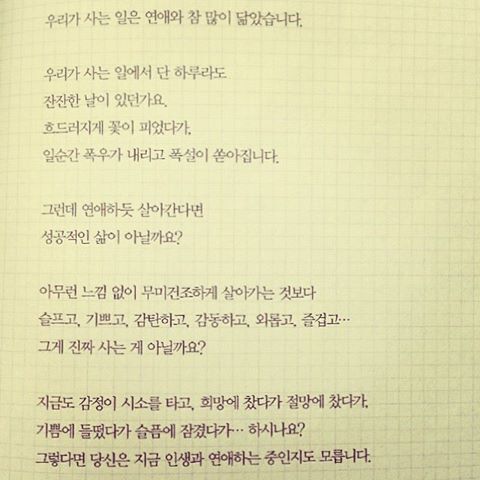 우리가 사는 일은 연애와 참 많이 닮았습니다.
우리가 사는 일에서 단 하루라도
잔잔한 날이 있던가요.
흐드러지게 꽃이 피었다가,
일순간 폭우가 내리고 폭설이 쏟아집니다.
그런데 연애하듯 살아간다면
성공적인 삶이 아닐까요?
아무런 느낌 없이 무미건조하게 살아가는 것보다
슬프고, 기쁘고, 감탄하고, 감동하고, 외롭고, 즐겁고…
그게 진짜 사는 게 아닐까요?
지금도 감정이 시소를 타고, 희망에 찼다가 절망에 찼다가,
기쁨에 들떴다가 슬픔에 잠겼다가… 하시나요?
그렇다면 당신은 지금 인생과 연애하는 중인지도 모릅니다.